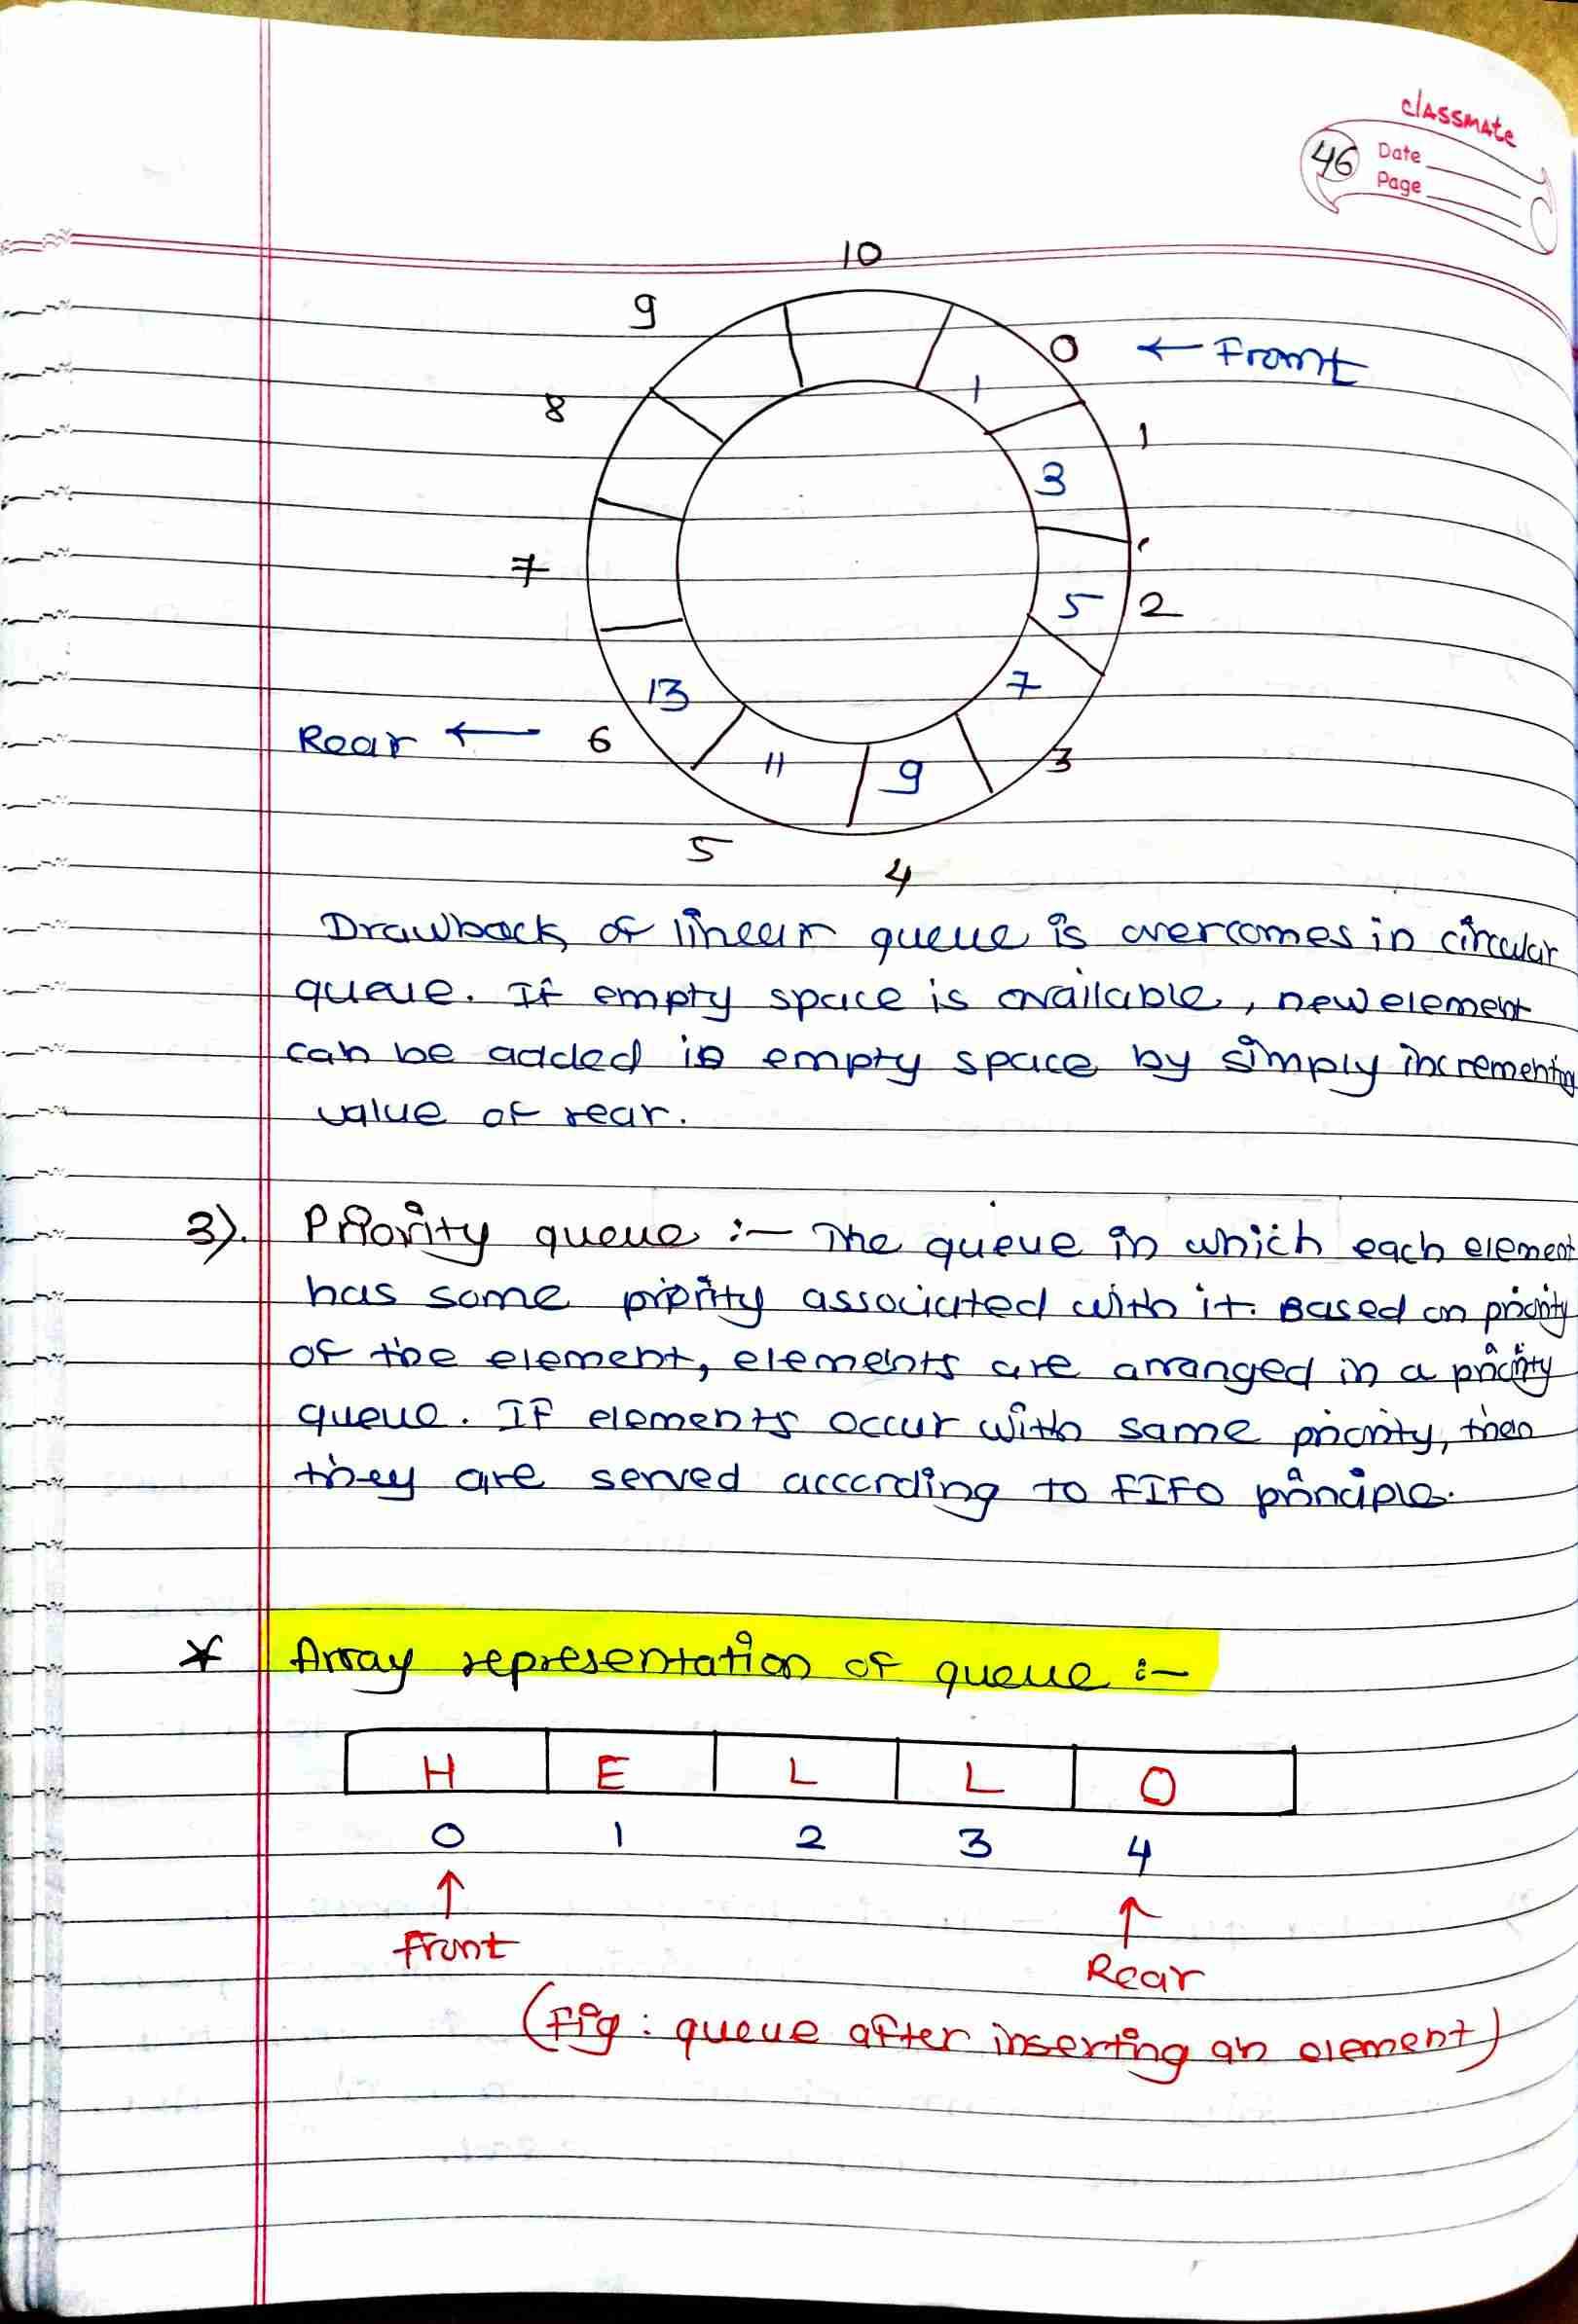 classmate
46 Date
Page
10
9
0 ← Front
1
8
1
3
7
5 2
7
13
Rear ← 6
3
11 9
5
4
Drawback of linear queue is overcomes in circular
queue. If empty space is available, new element
can be added in empty space by simply incrementing
value of rear.
3). Priority queue :- The queue in which each element
has some priority associated with it. Based on priority
of the element, elements are arranged in a priority
queue. If elements occur with same priority, then
they are served according to FIFO principle.
* Array representation of queue :-
H E L L O
0 1 2 3 4
↑ ↑
Front
Rear
(Fig : queue after inserting an element)